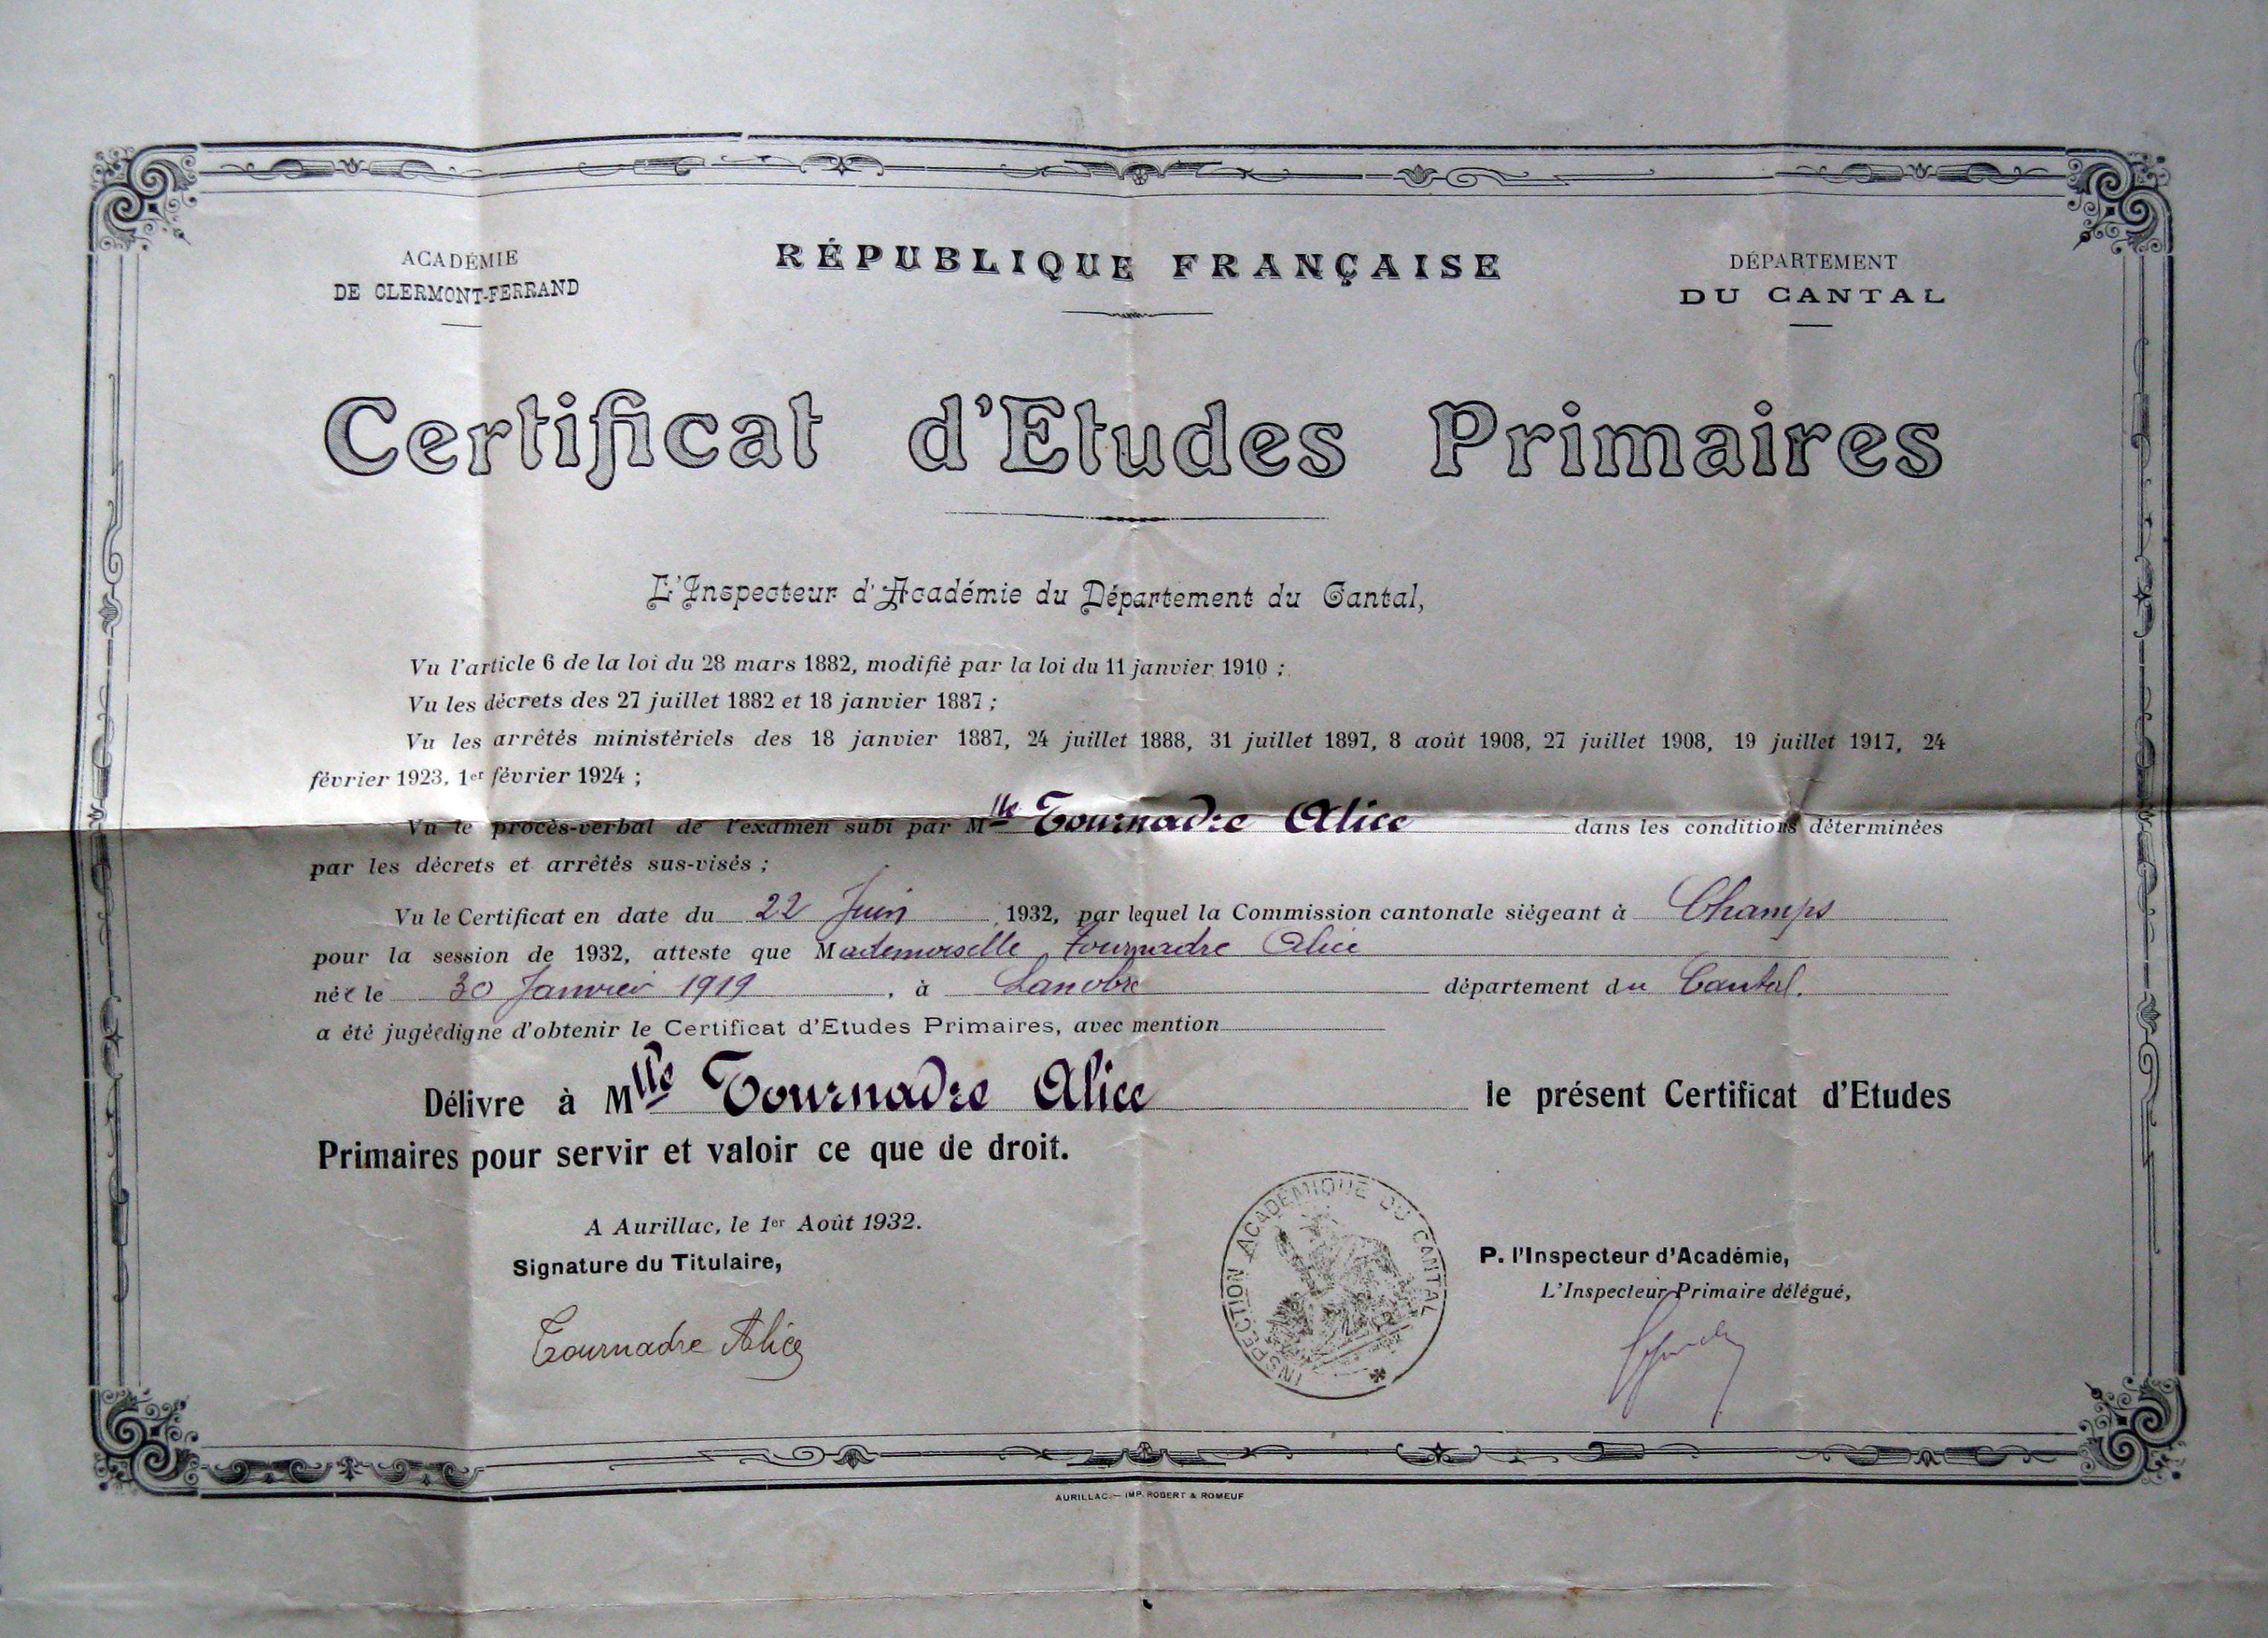 ACADÉMIE
DE CLERMONT-FERRAND
RÉPUBLIQUE FRANÇAISE
DÉPARTEMENT
DU CANTAL
Certificat d'Etudes Primaires
L'Inspecteur d'Académie du Département du Cantal,
Vu l'article 6 de la loi du 28 mars 1882, modifié par la loi du 11 janvier 1910 ;
Vu les décrets des 27 juillet 1882 et 18 janvier 1887 ;
Vu les arrêtés ministériels des 18 janvier 1887, 24 juillet 1888, 31 juillet 1897, 8 août 1908, 27 juillet 1908, 19 juillet 1917, 24
février 1923, 1er février 1924 ;
Vu le procès-verbal de l'examen subi par Mlle Tournadre Alice dans les conditions déterminées
par les décrets et arrêtés sus-visés ;
Vu le Certificat en date du 22 Juin 1932, par lequel la Commission cantonale siégeant à Champs
pour la session de 1932, atteste que Mademoiselle Tournadre Alice
née le 30 Janvier 1919, à Lanobre département du Cantal.
a été jugée digne d'obtenir le Certificat d'Etudes Primaires, avec mention
Délivre à Mlle Tournadre Alice le présent Certificat d'Etudes
Primaires pour servir et valoir ce que de droit.
A Aurillac, le 1er Août 1932.
Signature du Titulaire,
Tournadre Alice
INSPECTION ACADÉMIQUE DU CANTAL
P. l'Inspecteur d'Académie,
L'Inspecteur Primaire délégué,
AURILLAC. — IMP. ROBERT & ROMEUF